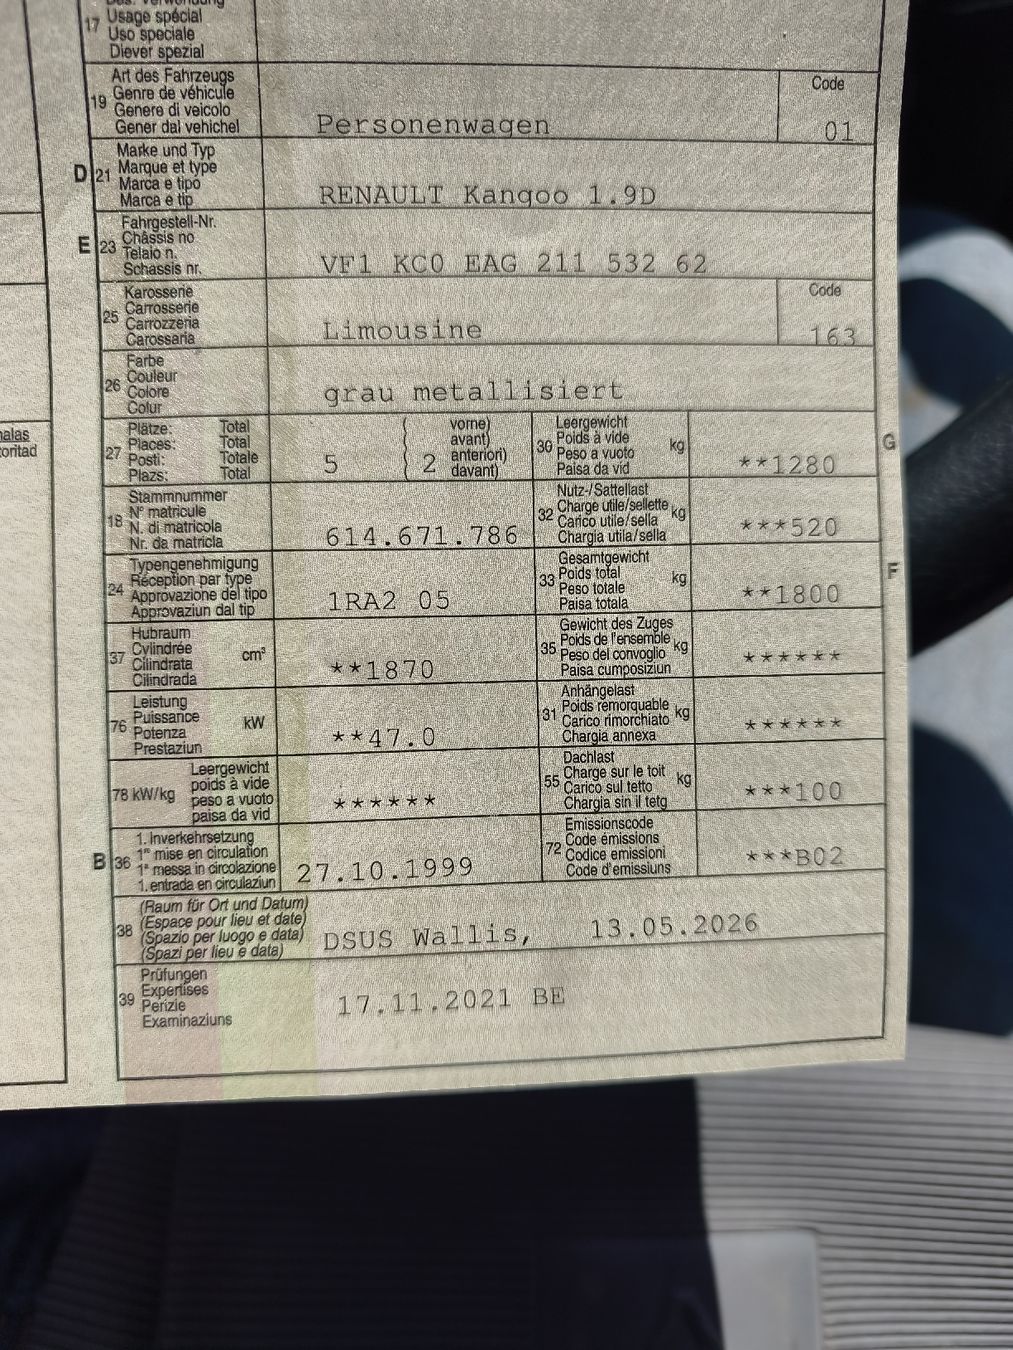 Des. Verwendung
17 Usage spécial
Uso speciale
Diever spezial
19 Art des Fahrzeugs
Genre de véhicule
Genere di veicolo
Gener dal vehichel
Personenwagen
Code
01
D 21 Marke und Typ
Marque et type
Marca e tipo
Marca e tip
RENAULT Kangoo 1.9D
E 23 Fahrgestell-Nr.
Châssis no
Telaio n.
Schassis nr.
VF1 KC0 EAG 211 532 62
25 Karosserie
Carrosserie
Carrozzeria
Carossaria
Limousine
Code
163
26 Farbe
Couleur
Colore
Colur
grau metallisiert
27 Plätze: Total
Places: Total
Posti: Totale
Plazs: Total
5 ( 2 vorne)
( avant)
( anteriori)
( davant)
30 Leergewicht
Poids à vide kg
Peso a vuoto
Paisa da vid
**1280
G
18 Stammnummer
N° matricule
N. di matricola
Nr. da matricla
614.671.786
32 Nutz-/Sattellast
Charge utile/sellette kg
Carico utile/sella
Chargia utila/sella
***520
24 Typengenehmigung
Réception par type
Approvazione del tipo
Approvaziun dal tip
1RA2 05
33 Gesamtgewicht
Poids total kg
Peso totale
Paisa totala
**1800
F
37 Hubraum
Cylindrée cm³
Cilindrata
Cilindrada
**1870
35 Gewicht des Zuges
Poids de l'ensemble kg
Peso del convoglio
Paisa cumposiziun
******
76 Leistung
Puissance kW
Potenza
Prestaziun
**47.0
31 Anhängelast
Poids remorquable kg
Carico rimorchiato
Chargia annexa
******
78 kW/kg Leergewicht
poids à vide
peso a vuoto
paisa da vid
******
55 Dachlast
Charge sur le toit kg
Carico sul tetto
Chargia sin il tetg
***100
B 36 1. Inverkehrsetzung
1re mise en circulation
1a messa in circolazione
1. entrada en circulaziun
27.10.1999
72 Emissionscode
Code émissions
Codice emissioni
Code d'emissiuns
***B02
38 (Raum für Ort und Datum)
(Espace pour lieu et date)
(Spazio per luogo e data)
(Spazi per lieu e data)
DSUS Wallis, 13.05.2026
39 Prüfungen
Expertises
Perizie
Examinaziuns
17.11.2021 BE